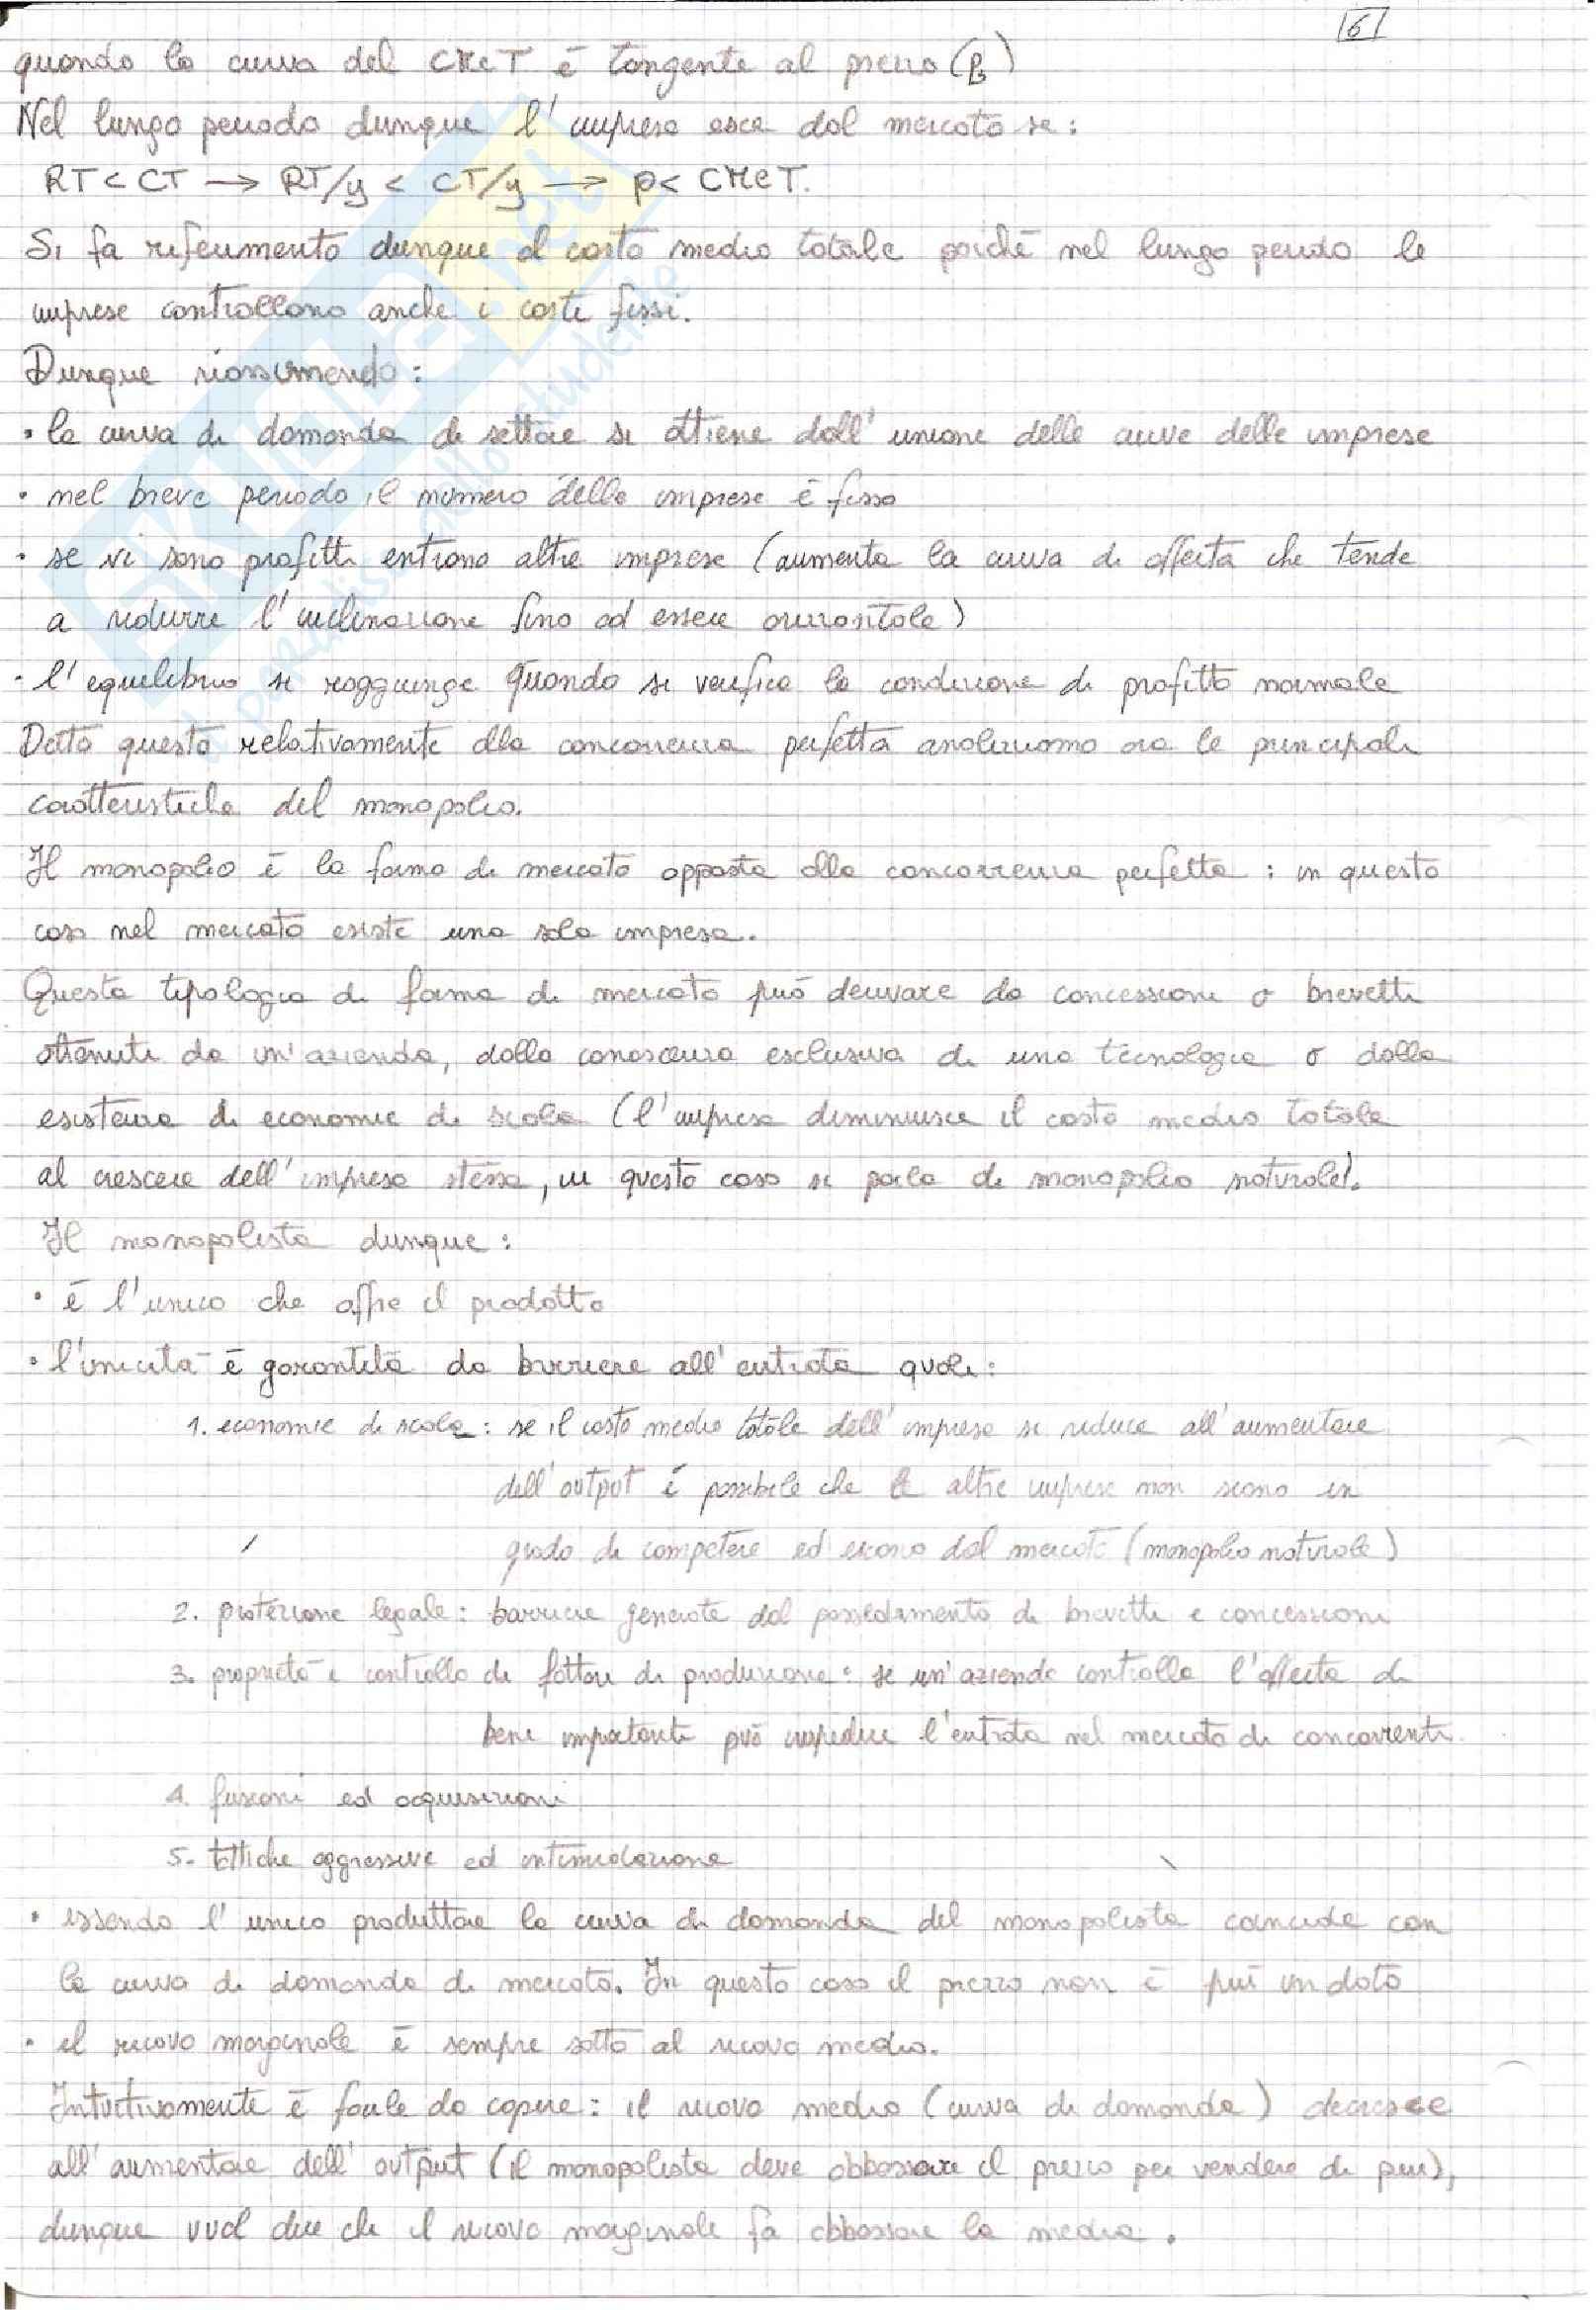 6
quando la curva del CMeT è tangente al prezzo (P3)
Nel lungo periodo dunque l'impresa esce dal mercato se:
RT < CT → RT/y < CT/y → p < CMeT.
Si fa riferimento dunque al costo medio totale poichè nel lungo periodo le
imprese controllano anche i costi fissi.
Dunque riassumendo:
• la curva di domanda di settore si ottiene dall'unione delle curve delle imprese
• nel breve periodo il numero delle imprese è fisso
• se vi sono profitti entrano altre imprese (aumenta la curva di offerta che tende
a ridurre l'inclinazione fino ad essere orizzontale)
• l'equilibrio si raggiunge quando si verifica la condizione di profitto normale
Detto questo relativamente alla concorrenza perfetta analizziamo ora le principali
caratteristiche del monopolio.
Il monopolio è la forma di mercato opposta alla concorrenza perfetta: in questo
caso nel mercato esiste una sola impresa.
Questa tipologia di forma di mercato può derivare da concessioni o brevetti
ottenuti da un'azienda, dalla conoscenza esclusiva di una tecnologia o dalla
esistenza di economie di scala (l'impresa diminuisce il costo medio totale
al crescere dell'impresa stessa, in questo caso si parla di monopolio naturale).
Il monopolista dunque:
• è l'unico che offre il prodotto
• l'unicità è garantita da barriere all'entrata quali:
1. economie di scala: se il costo medio totale dell'impresa si riduce all'aumentare
dell'output è possibile che le altre imprese non siano in
grado di competere ed escono dal mercato (monopolio naturale)
2. protezione legale: barriere generate dal possedimento di brevetti e concessioni
3. proprietà e controllo di fattori di produzione: se un'azienda controlla l'offerta di
beni importanti può impedire l'entrata nel mercato di concorrenti.
4. fusioni ed acquisizioni
5. tattiche aggressive ed intimidazione
• essendo l'unico produttore la curva di domanda del monopolista coincide con
la curva di domanda di mercato. In questo caso il prezzo non è più un dato
• il ricavo marginale è sempre sotto al ricavo medio.
Intuitivamente è facile da capire: il ricavo medio (curva di domanda) decresce
all'aumentare dell'output (il monopolista deve abbassare il prezzo per vendere di più),
dunque vuol dire che il ricavo marginale fa abbassare la media.
SKUOLA.net
il paradiso dello studente